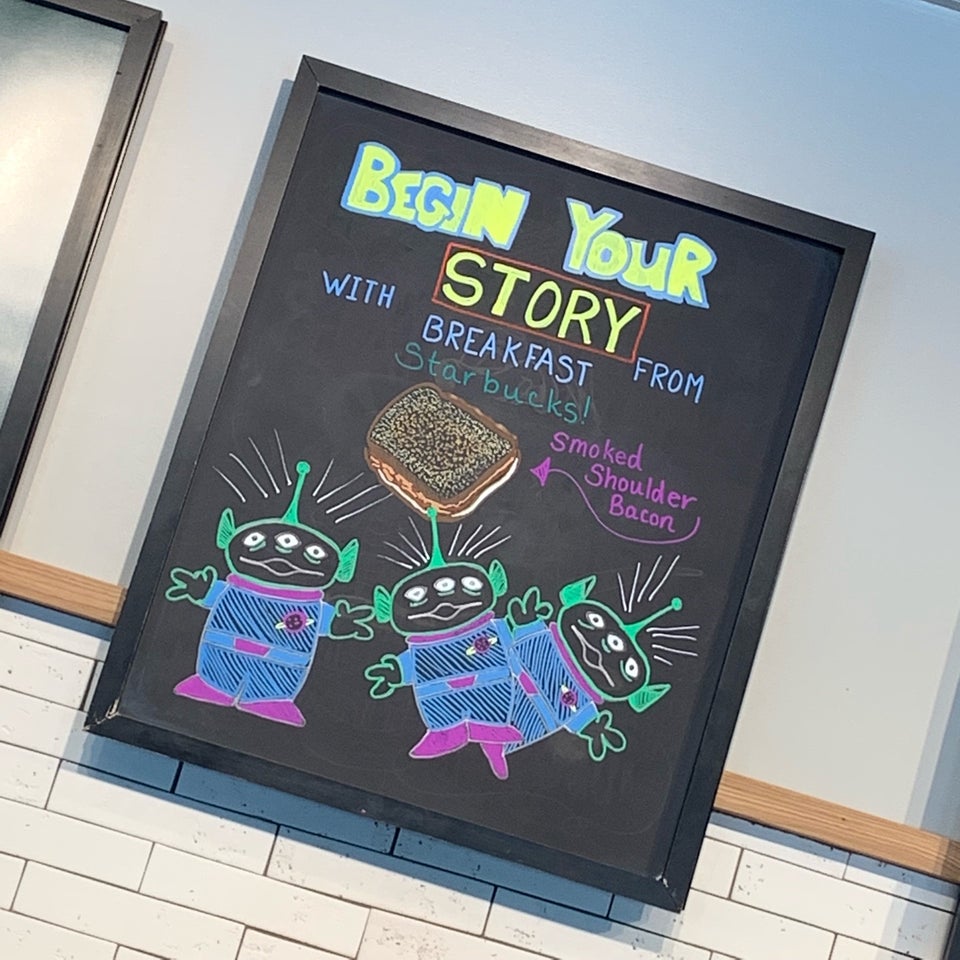 BEGIN YOUR
STORY
WITH BREAKFAST FROM
Starbucks!
Smoked
Shoulder
Bacon